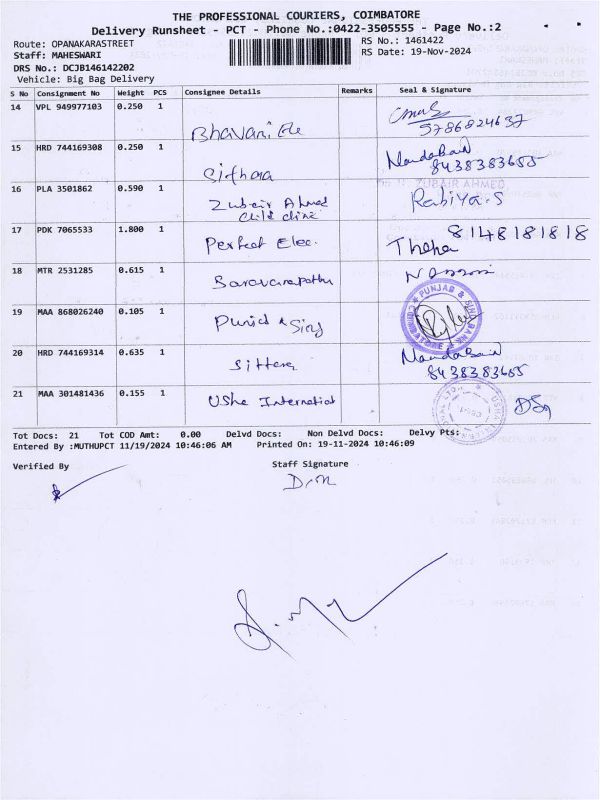 THE PROFESSIONAL COURIERS, COIMBATORE
Delivery Runsheet - PCT - Phone No.:0422-3505555 - Page No.:2
Route: OPANAKARASTREET RS No.: 1461422
Staff: MAHESWARI RS Date: 19-Nov-2024
DRS No.: DCJB146142202
Vehicle: Big Bag Delivery
S No Consignment No Weight PCS Consignee Details Remarks Seal & Signature
14 VPL 949977103 0.250 1 Bhavani Ele 9786824637
15 HRD 744169308 0.250 1 Sithara 8438383655
16 PLA 3501862 0.590 1 Zubair Ahmed Rabiya.S
Child clinic
17 PDK 7065533 1.800 1 Perfect Elec. 8148181818
18 MTR 2531285 0.615 1
19 MAA 868026240 0.105 1 PUNJAB & SIND BANK
20 HRD 744169314 0.635 1 8438383655
21 MAA 301481436 0.155 1 Usha Internatiol
Tot Docs: 21 Tot COD Amt: 0.00 Delvd Docs: Non Delvd Docs: Delvy Pts:
Entered By :MUTHUPCT 11/19/2024 10:46:06 AM Printed On: 19-11-2024 10:46:09
Verified By Staff Signature